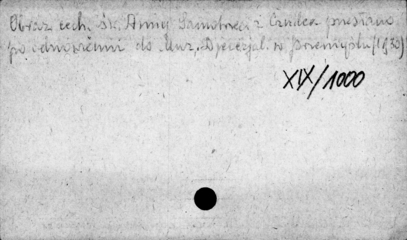 Obraz cech. św. Anny Samotrzeć z Czudca przesłano
po odnowieniu do Muz. Diecezjal. w Przemyślu (1930)
XIX/1000